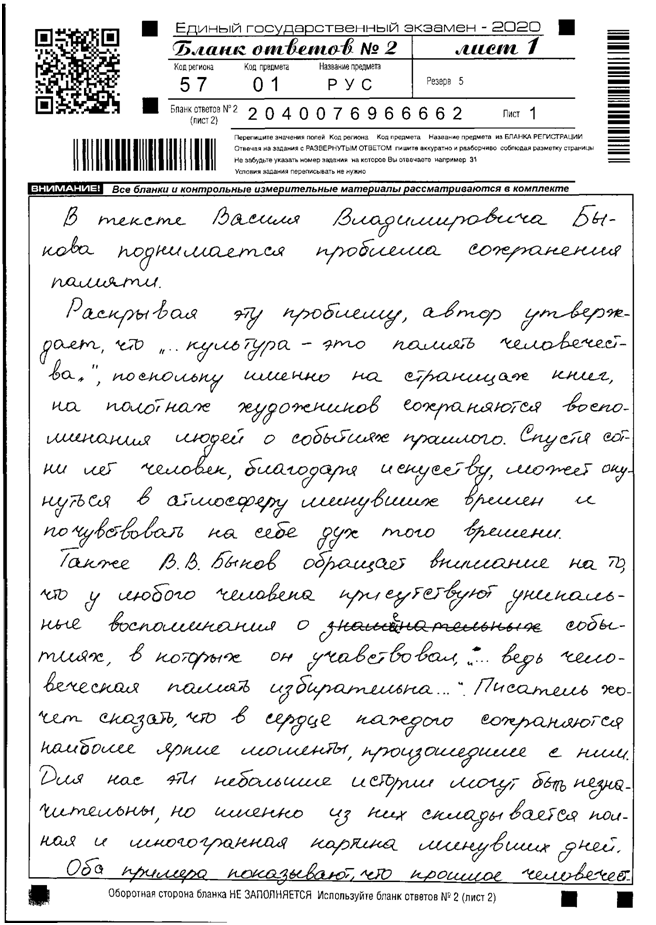 Единый государственный экзамен - 2020
Бланк ответов № 2 лист 1
Код региона Код предмета Название предмета
57 01 РУС Резерв 5
Бланк ответов № 2 (лист 2) 2040076966662 Лист 1
Перепишите значения полей Код региона Код предмета Название предмета из БЛАНКА РЕГИСТРАЦИИ
Отвечая на задания с РАЗВЕРНУТЫМ ОТВЕТОМ пишите аккуратно и разборчиво соблюдая разметку страницы
Не забудьте указать номер задания на которое Вы отвечаете например 31
Условия задания переписывать не нужно
ВНИМАНИЕ! Все бланки и контрольные измерительные материалы рассматриваются в комплекте
В тексте Василя Владимировича Бы-
кова поднимается проблема сохранения
памяти.
Раскрывая эту проблему, автор утверж-
дает, что „... культура – это память человечест-
ва.", поскольку именно на страницах книг,
на полотнах художников сохраняются воспо-
минания людей о событиях прошлого. Спустя сот-
ни лет человек, благодаря искусству, может оку-
нуться в атмосферу минувших времен и
почувствовать на себе дух того времени.
Также В.В. Быков обращает внимание на то,
что у любого человека присутствуют уникаль-
ные воспоминания о знаменательных собы-
тиях, в которых он учавствовал, „... ведь чело-
веческая память избирательна...". Писатель хо-
чет сказать, что в сердце каждого сохраняются
наиболее яркие моменты, произошедшие с ним.
Для нас эти небольшие истории могут быть незна-
чительны, но именно из них складывается пол-
ная и многогранная картина минувших дней.
Оба примера показывают, что прошлое человечест-
Оборотная сторона бланка НЕ ЗАПОЛНЯЕТСЯ Используйте бланк ответов № 2 (лист 2)